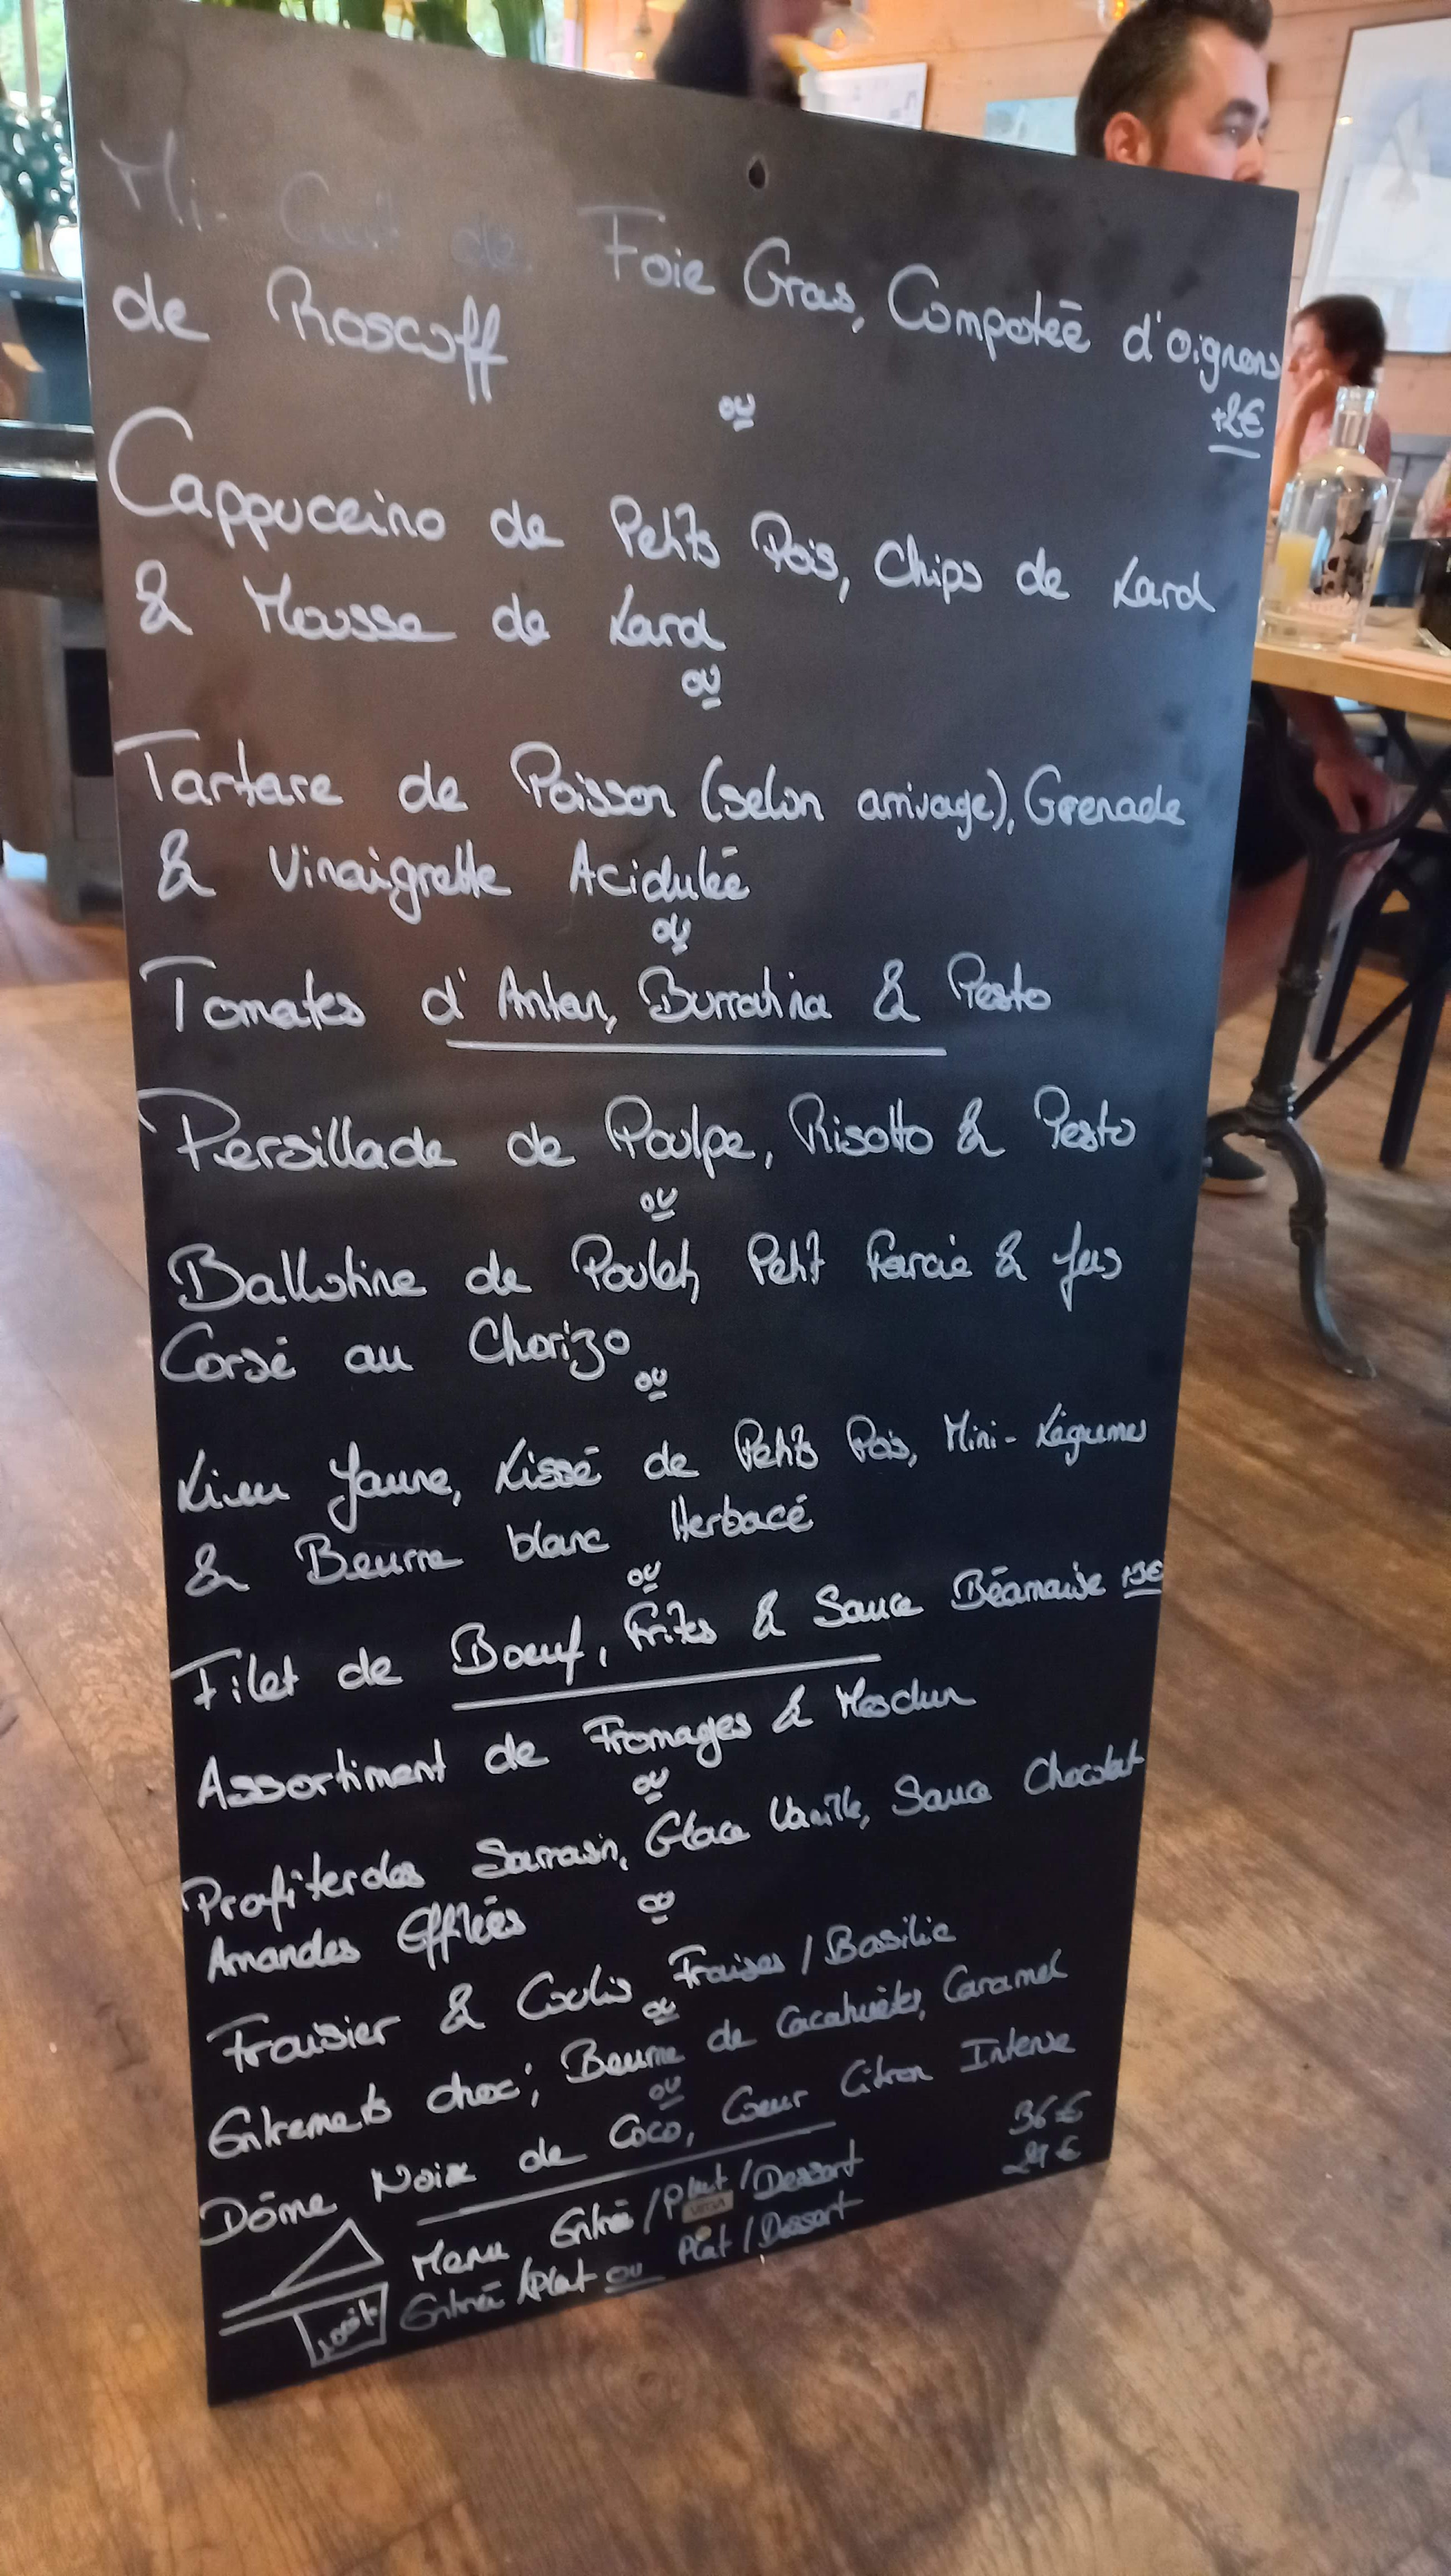 Mi-Cuit de Foie Gras, Compotée d'oignons
de Roscoff
ou
+2€
Cappuccino de Petits Pois, Chips de Lard
& Mousse de Lard
ou
Tartare de Poisson (selon arrivage), Grenade
& Vinaigrette Acidulée
ou
Tomates d'Antan, Burratina & Pesto
Persillade de Poulpe, Risotto & Pesto
ou
Ballotine de Poulet, Petit Farcie & Jus
Corsé au Chorizo
ou
Lieu Jaune, Lissé de Petits Pois, Mini-Légumes
& Beurre blanc Herbacé
ou
Filet de Boeuf, Frites & Sauce Béarnaise
Assortiment de Fromages & Mesclun
ou
Profiteroles Sarrasin, Glace Vanille, Sauce Chocolat
Amandes Effilées
ou
Fraisier & Coulis Fraises/Basilic
ou
Entremets choc', Beurre de Cacahuètes, Caramel
ou
Dôme Noix de Coco, Coeur Citron Intense
Menu Entrée/Plat/Dessert 36€
Entrée/Plat ou Plat/Dessert 29€